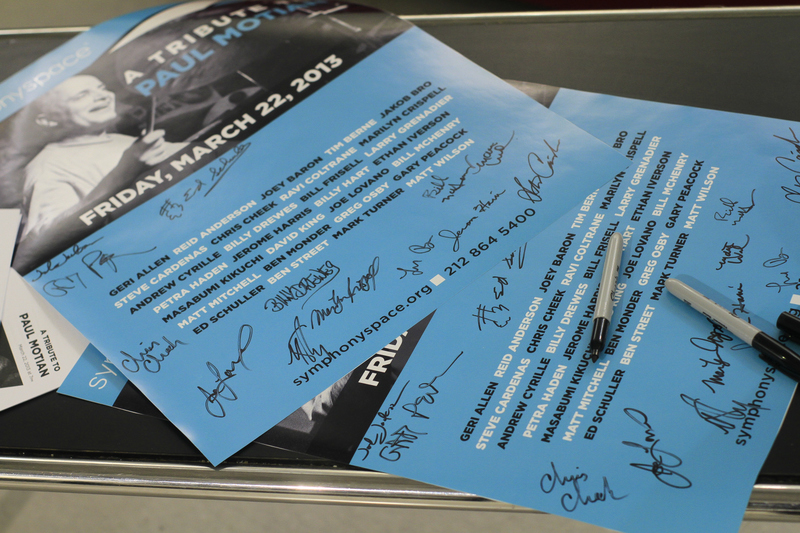 nyspace
A TRIBUTE
PAUL MOTIAN
FRIDAY, MARCH 22, 2013
GERI ALLEN REID ANDERSON JOEY BARON TIM BERNE JAKOB BRO
STEVE CARDENAS CHRIS CHEEK RAVI COLTRANE MARILYN CRISPELL
ANDREW CYRILLE BILLY DREWES BILL FRISELL LARRY GRENADIER
PETRA HADEN JEROME HARRIS BILLY HART ETHAN IVERSON
MASABUMI KIKUCHI DAVID KING JOE LOVANO BILL MCHENRY
MATT MITCHELL BEN MONDER GREG OSBY GARY PEACOCK
ED SCHULLER BEN STREET MARK TURNER MATT WILSON
Ed Schuller
Chris Cheek
Joe Lovano
symphonyspace.org 212 864 5400
A TRIBUTE TO
PAUL MOTIAN
sy
FRID
GERI ALLEN REID ANDERSON JOEY BARON TIM BERNE BRO
STEVE CARDENAS CHRIS CHEEK RAVI COLTRANE MARILYN CRISPELL
ANDREW CYRILLE BILLY DREWES BILL FRISELL LARRY GRENADIER
PETRA HADEN JEROME HAR ETHAN IVERSON
MASABUMI KIKUCHI KING JOE LOVANO BILL MCHENRY
MATT MITCHELL BEN MONDER GREG OSBY GARY PEACOCK
ED SCHULLER BEN STREET MARK TURNER MATT WILSON
Chris Cheek
symphonysp